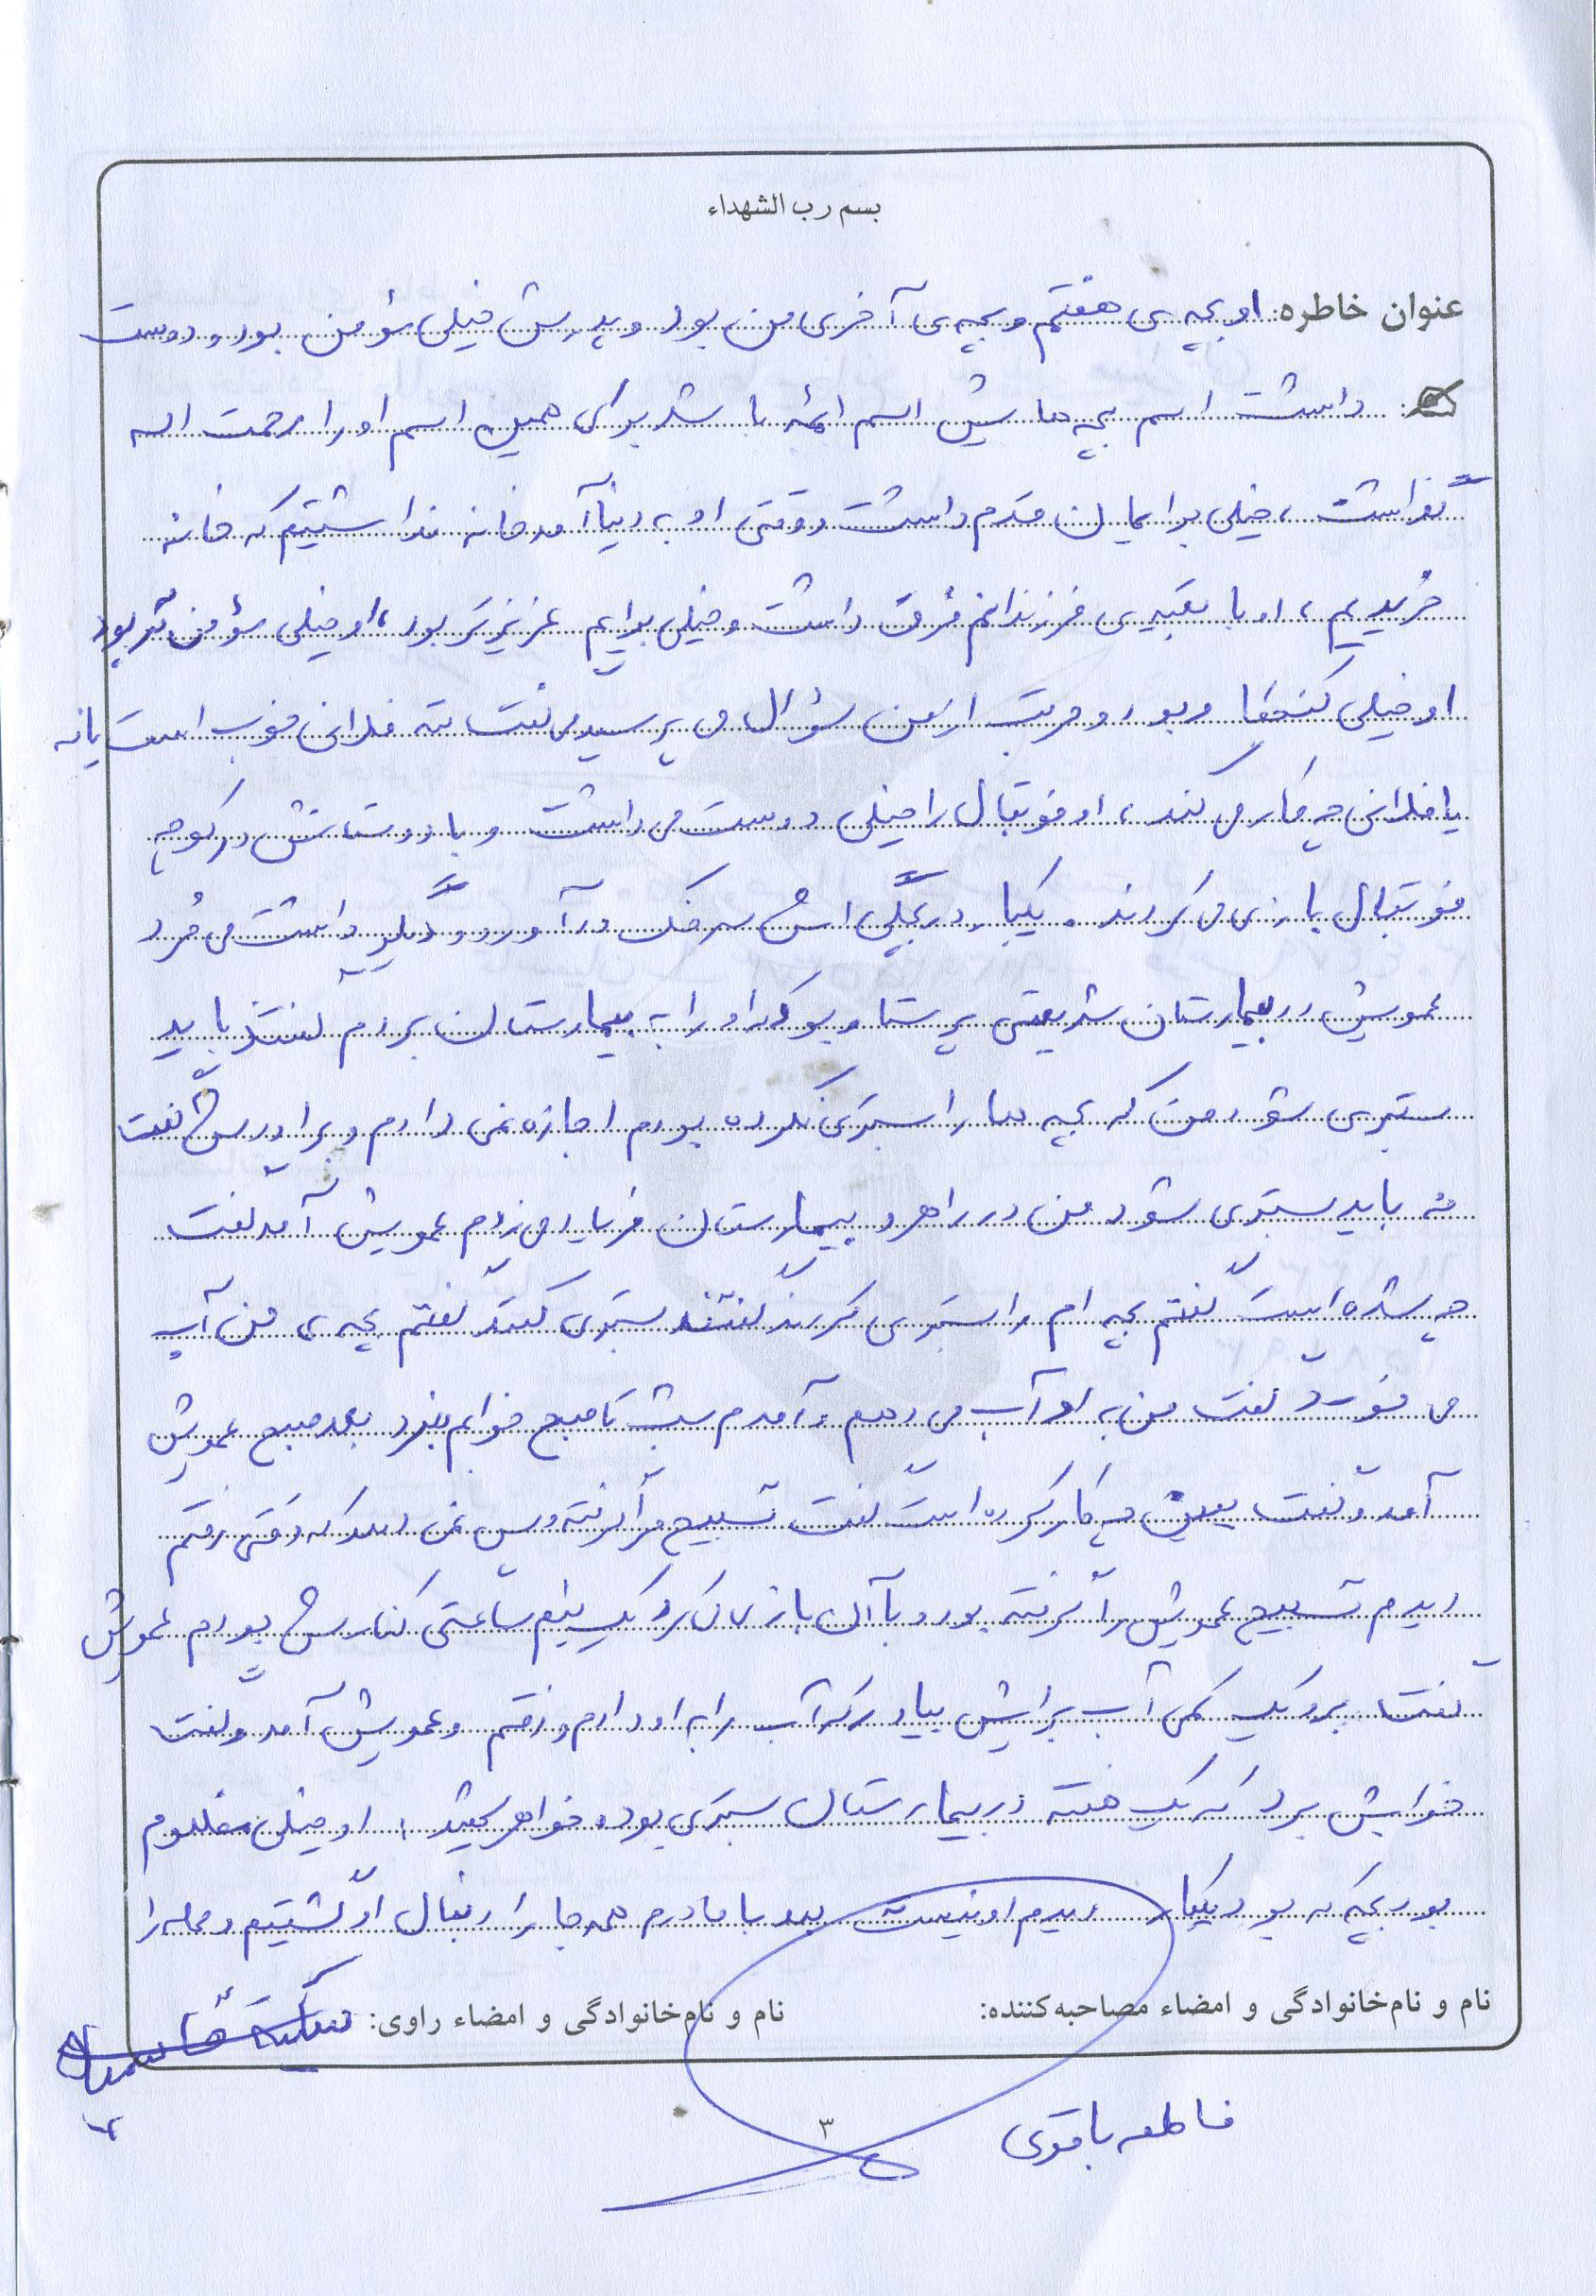 بسم رب الشهداء
عنوان خاطره: او بچه ی هفتم و بچه ی آخری من بود و پدرش خیلی مؤمن بود و دوست
داشت اسم بچه هایش اسم ائمه باشد برای همین اسم او را رحمت اله
گذاشت، خیلی برایمان قدم داشت وقتی او به دنیا آمد خانه نداشتیم که خانه
خریدیم، او با بقیه ی فرزندانم فرق داشت و خیلی برایم عزیزتر بود، او خیلی مؤمن تر بود
او خیلی کنجکاو بود و مرتب از من سؤال می پرسید می گفت ننه فلانی خوب است یا نه
یا فلانی چه کار می کند، او فوتبال را خیلی دوست می داشت و با دوستانش در کوچه
فوتبال بازی می کردند. یکبار در بچگی اش سرخک درآورد و دیگر داشت می مُرد
عمویش در بیمارستان شریعتی پرستار بود که او را به بیمارستان بردم گفتند باید
بستری شود من که بچه ها را بستری نکرده بودم اجازه نمی دادم و برادرش گفت
نه باید بستری شود من در راهرو بیمارستان فریاد می زدم عمویش آمد گفت
چه شده است گفتم بچه ام را بستری کردند گفتند بستری کنید گفتم بچه ی من آب
می خورد گفت من به او آب می دهم و آمدم شب تا صبح خوابم نبرد بعد صبح عمویش
آمد و گفت ببین چه کار کرده است گفت تسبیح مرا گرفته و پس نمی دهد که وقتی رفتم
دیدم تسبیح عمویش را گرفته بود و با آن بازی می کرد یک نیم ساعتی کنارش بودم عمویش
گفت برو یک کمی آب برایش بیاور که آب را به او دادم و رفتم و عمویش آمد و گفت
خوابش برد که یک هفته در بیمارستان بستری بود. او خیلی مظلوم
بود بچه که بود یکبار دیدم او نیست بعد با مادرم همه جا را دنبال او گشتیم و محله را
نام و نام‌خانوادگی و امضاء مصاحبه‌کننده: نام و نام‌خانوادگی و امضاء راوی: سکینه
فاطمه باقری
۳